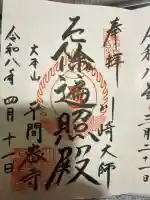 令和八年三月二十一日
奉拝
川崎大師
厄除遍照殿
大本山
平間寺
令和八年四月十一日